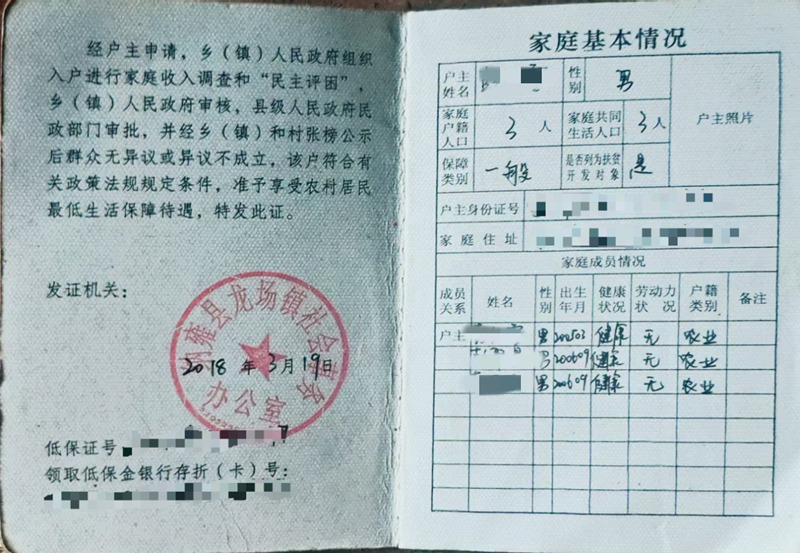 经户主申请，乡（镇）人民政府组织
入户进行家庭收入调查和“民主评困”，
乡（镇）人民政府审核，县级人民政府民
政部门审批，并经乡（镇）和村张榜公示
后群众无异议或异议不成立，该户符合有
关政策法规规定条件，准予享受农村居民
最低生活保障待遇，特发此证。
发证机关：
雍县龙场镇社会事务
办公室
2018 年 3 月 19 日
低保证号
领取低保金银行存折（卡）号：
家庭基本情况
户主姓名 性别 男 户主照片
家庭户籍人口 3 人 家庭共同生活人口 3 人
保障类别 一般 是否列为扶贫开发对象 是
户主身份证号
家庭住址
家庭成员情况
成员关系 姓名 性别 出生年月 健康状况 劳动力状况 户籍类别 备注
户主 男 健康 无 农业
男 200609 健康 无 农业
男 200609 健康 无 农业